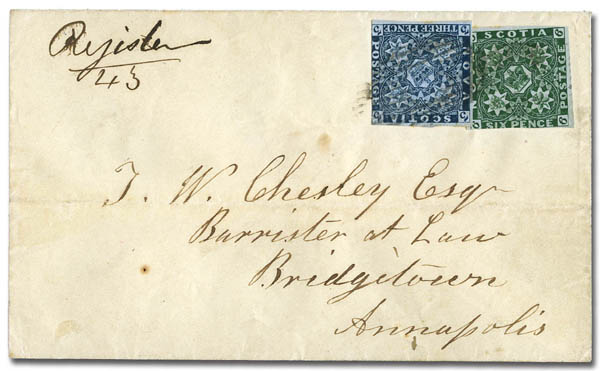 Register
43
THREE PENCE
POSTAGE
NOVA
SCOTIA
SCOTIA
POSTAGE
SIX PENCE
T. W. Chesley Esqr
Barrister at Law
Bridgetown
Annapolis